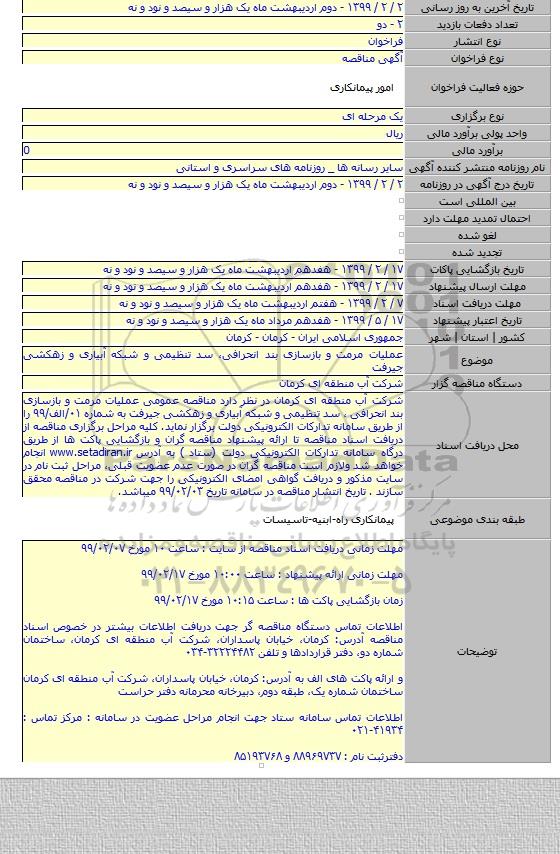 تاریخ آخرین به روز رسانی ۲ / ۲ / ۱۳۹۹ - دوم اردیبهشت ماه یک هزار و سیصد و نود و نه
تعداد دفعات بازدید ۲ - دو
نوع انتشار فراخوان
نوع فراخوان آگهی مناقصه
حوزه فعالیت فراخوان امور پیمانکاری
نوع برگزاری یک مرحله ای
واحد پولی برآورد مالی ریال
برآورد مالی 0
نام روزنامه منتشر کننده آگهی سایر رسانه ها _ روزنامه های سراسری و استانی
تاریخ درج آگهی در روزنامه ۲ / ۲ / ۱۳۹۹ - دوم اردیبهشت ماه یک هزار و سیصد و نود و نه
بین المللی است
احتمال تمدید مهلت دارد
لغو شده
تجدید شده
تاریخ بازگشایی پاکات ۱۷ / ۲ / ۱۳۹۹ - هفدهم اردیبهشت ماه یک هزار و سیصد و نود و نه
مهلت ارسال پیشنهاد ۱۷ / ۲ / ۱۳۹۹ - هفدهم اردیبهشت ماه یک هزار و سیصد و نود و نه
مهلت دریافت اسناد ۷ / ۲ / ۱۳۹۹ - هفتم اردیبهشت ماه یک هزار و سیصد و نود و نه
تاریخ اعتبار پیشنهاد ۱۷ / ۵ / ۱۳۹۹ - هفدهم مرداد ماه یک هزار و سیصد و نود و نه
کشور | استان | شهر جمهوری اسلامی ایران - کرمان - کرمان
موضوع عملیات مرمت و بازسازی بند انحرافی، سد تنظیمی و شبکه آبیاری و زهکشی
جیرفت
دستگاه مناقصه گزار شرکت آب منطقه ای کرمان
محل دریافت اسناد شرکت آب منطقه ای کرمان در نظر دارد مناقصه عمومی عملیات مرمت و بازسازی
بند انحرافی ، سد تنظیمی و شبکه آبیاری و زهکشی جیرفت به شماره ۰۱/الف/۹۹ را
از طریق سامانه تدارکات الکترونیکی دولت برگزار نماید. کلیه مراحل برگزاری مناقصه از
دریافت اسناد مناقصه تا ارائه پیشنهاد مناقصه گران و بازگشایی پاکت ها از طریق
درگاه سامانه تدارکات الکترونیکی دولت (ستاد ) به آدرس www.setadiran.ir انجام
خواهد شد ولازم است مناقصه گران در صورت عدم عضویت قبلی، مراحل ثبت نام در
سایت مذکور و دریافت گواهی امضای الکترونیکی را جهت شرکت در مناقصه محقق
سازند . تاریخ انتشار مناقصه در سامانه تاریخ ۹۹/۰۲/۰۳ میباشد.
طبقه بندی موضوعی پیمانکاری راه-ابنیه-تاسیسات
توضیحات
مهلت زمانی دریافت اسناد مناقصه از سایت : ساعت ۱۰ مورخ ۹۹/۰۲/۰۷
مهلت زمانی ارائه پیشنهاد : ساعت ۱۰:۰۰ مورخ ۹۹/۰۲/۱۷
زمان بازگشایی پاکت ها : ساعت ۱۰:۱۵ مورخ ۹۹/۰۲/۱۷
اطلاعات تماس دستگاه مناقصه گر جهت دریافت اطلاعات بیشتر در خصوص اسناد
مناقصه آدرس: کرمان، خیابان پاسداران، شرکت آب منطقه ای کرمان، ساختمان
شماره دو، دفتر قراردادها و تلفن ۳۲۲۲۴۴۸۲-۰۳۴
و ارائه پاکت های الف به آدرس: کرمان، خیابان پاسداران، شرکت آب منطقه ای کرمان
ساختمان شماره یک، طبقه دوم، دبیرخانه محرمانه دفتر حراست
اطلاعات تماس سامانه ستاد جهت انجام مراحل عضویت در سامانه : مرکز تماس :
۴۱۹۳۴-۰۲۱
دفترثبت نام : ۸۸۹۶۹۷۳۷ و ۸۵۱۹۳۷۶۸
پایگاه اطلاع رسانی مناقصه و مزایده
۰۲۱-۸۸۳۴۹۶۷۰-۵